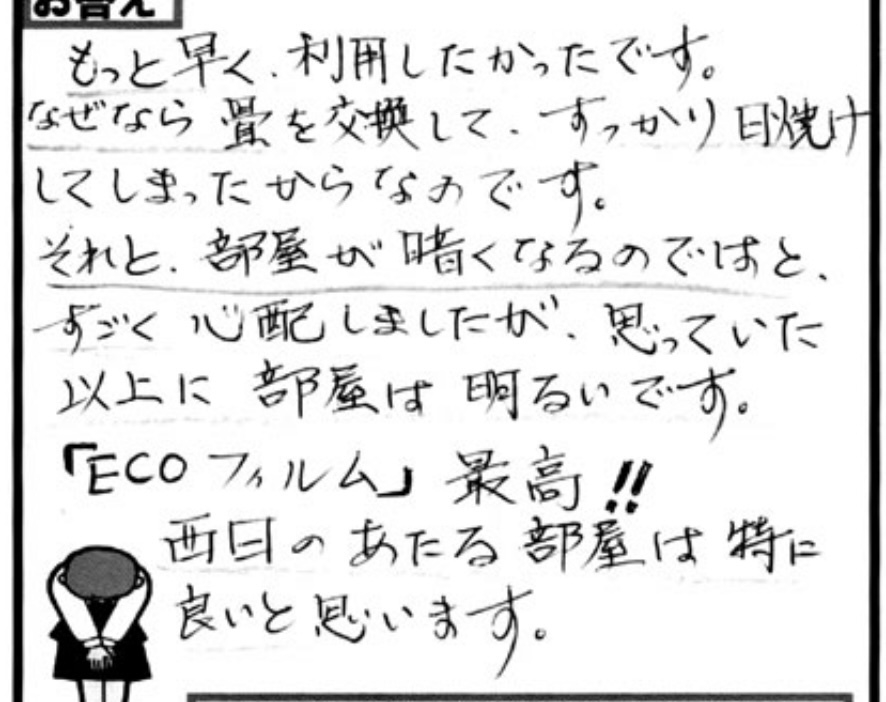 お答え
もっと早く、利用したかったです。
なぜなら畳を交換して、すっかり日焼け
してしまったからなのです。
それと、部屋が暗くなるのではと、
すごく心配しましたが、思っていた
以上に部屋は明るいです。
「ECOフィルム」最高!!
西日のあたる部屋は特に
良いと思います。